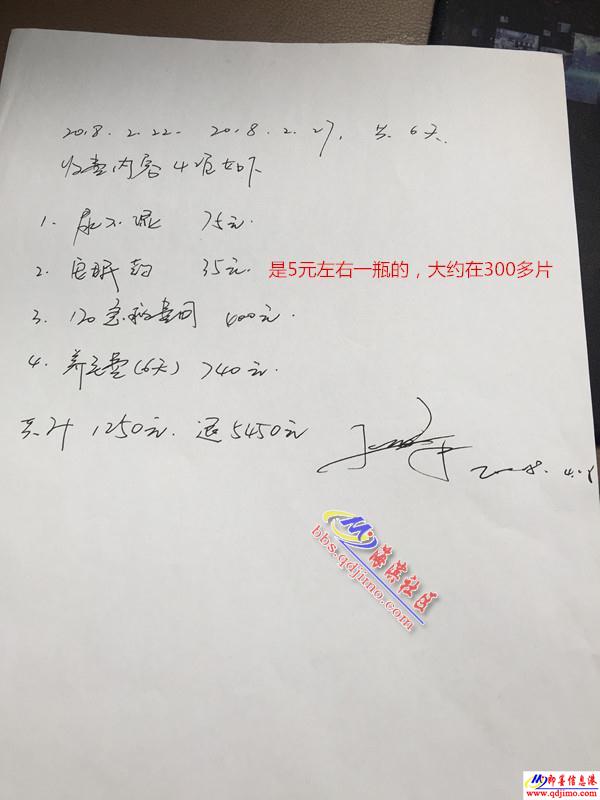 2018.2.22. 2018.2.27, 共6天.
收费内容4项如下
1. 尿不湿 75元.
2. 安眠药 35元. 是5元左右一瓶的，大约在300多片
3. 120急救费用 400元.
4. 养老费(6天) 740元.
共计 1250元. 退5450元
2018.4.
海滨社区
bbs.qdjimo.com
即墨信息港
www.qdjimo.com